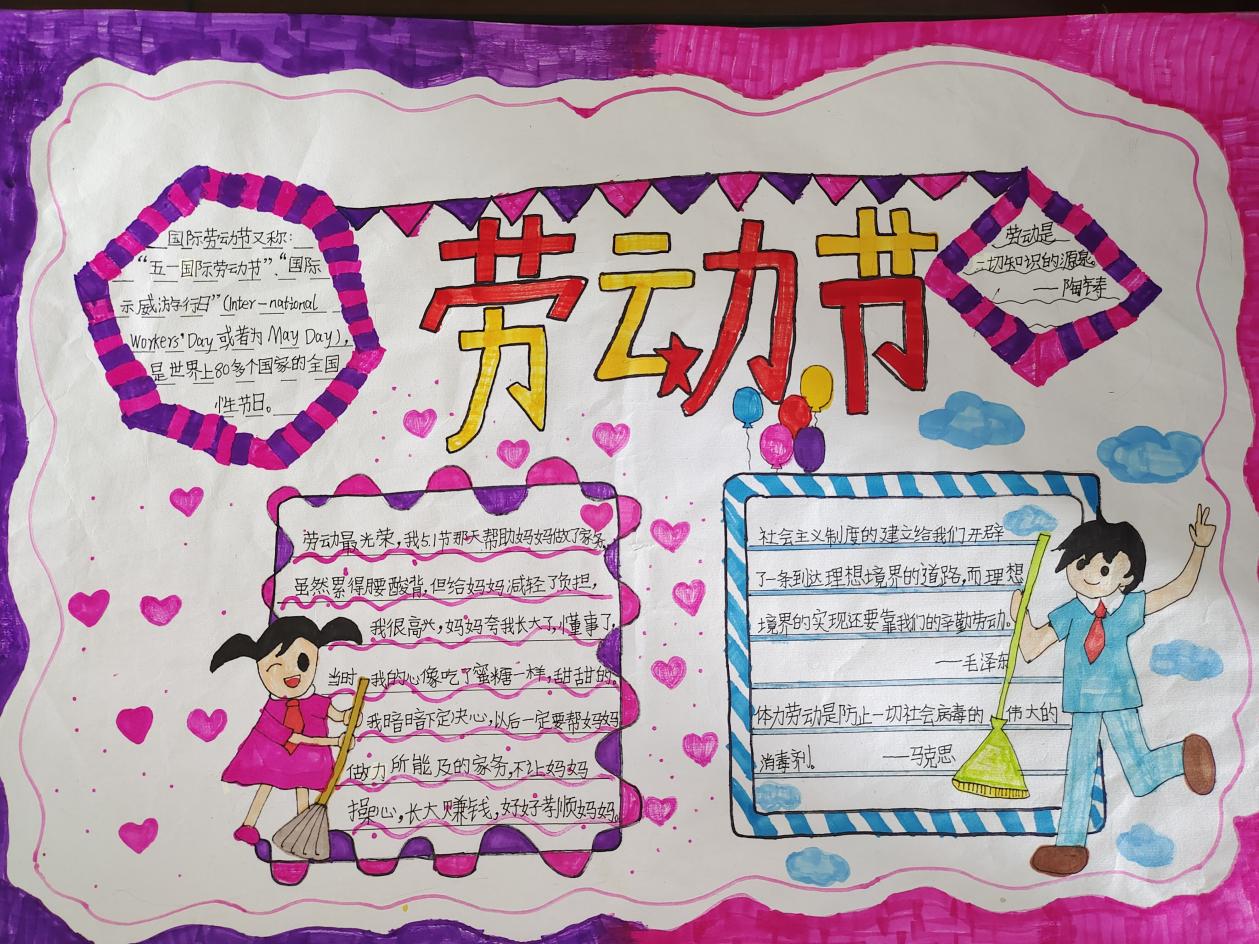 劳动节
国际劳动节又称:
“五一国际劳动节”.“国际
示威游行日”(Inter-national
Workers'Day或者为May Day),
是世界上80多个国家的全国
性节日。
劳动是
一切知识的源泉。
——陶行知
劳动最光荣,我5.1节那天帮助妈妈做了家务,
虽然累得腰酸背,但给妈妈减轻了负担,
我很高兴,妈妈夸我长大了,懂事了,
当时,我的心像吃了蜜糖一样,甜甜的。
我暗暗下定决心,以后一定要帮妈妈
做力所能及的家务,不让妈妈
操心,长大赚钱,好好孝顺妈妈。
社会主义制度的建立给我们开辟
了一条到达理想境界的道路,而理想
境界的实现还要靠我们的辛勤劳动。
——毛泽东
体力劳动是防止一切社会病毒的 伟大的
消毒剂。 ——马克思